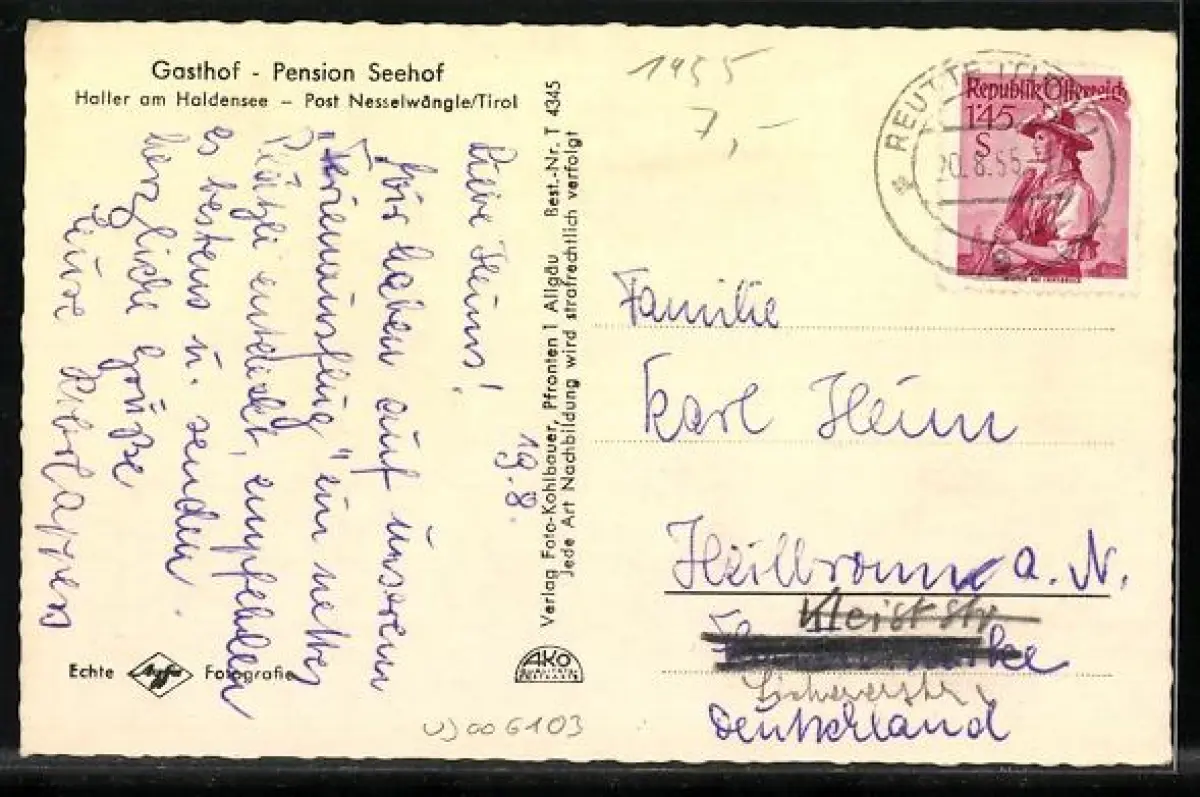 Gasthof - Pension Seehof
Haller am Haldensee – Post Nesselwängle/Tirol
19.8.
Liebe Heims!
Wir haben auf unserem
"Ferienausflug" ein nettes
Plätzli entdeckt, empfehlen
es bestens u. senden
herzliche Grüße
Eure
Echte Agfa Fotografie
Verlag Foto-Kohlbauer, Pfronten 1 Allgäu Best.-Nr. T 4345
Jede Art Nachbildung wird strafrechtlich verfolgt
AKO
1955
7,-
REUTTE
20.8.55
Republik Österreich
1'45
S
Familie
Karl Heim
Heilbronn a. N.
Kleiststr
Deutschland
006103